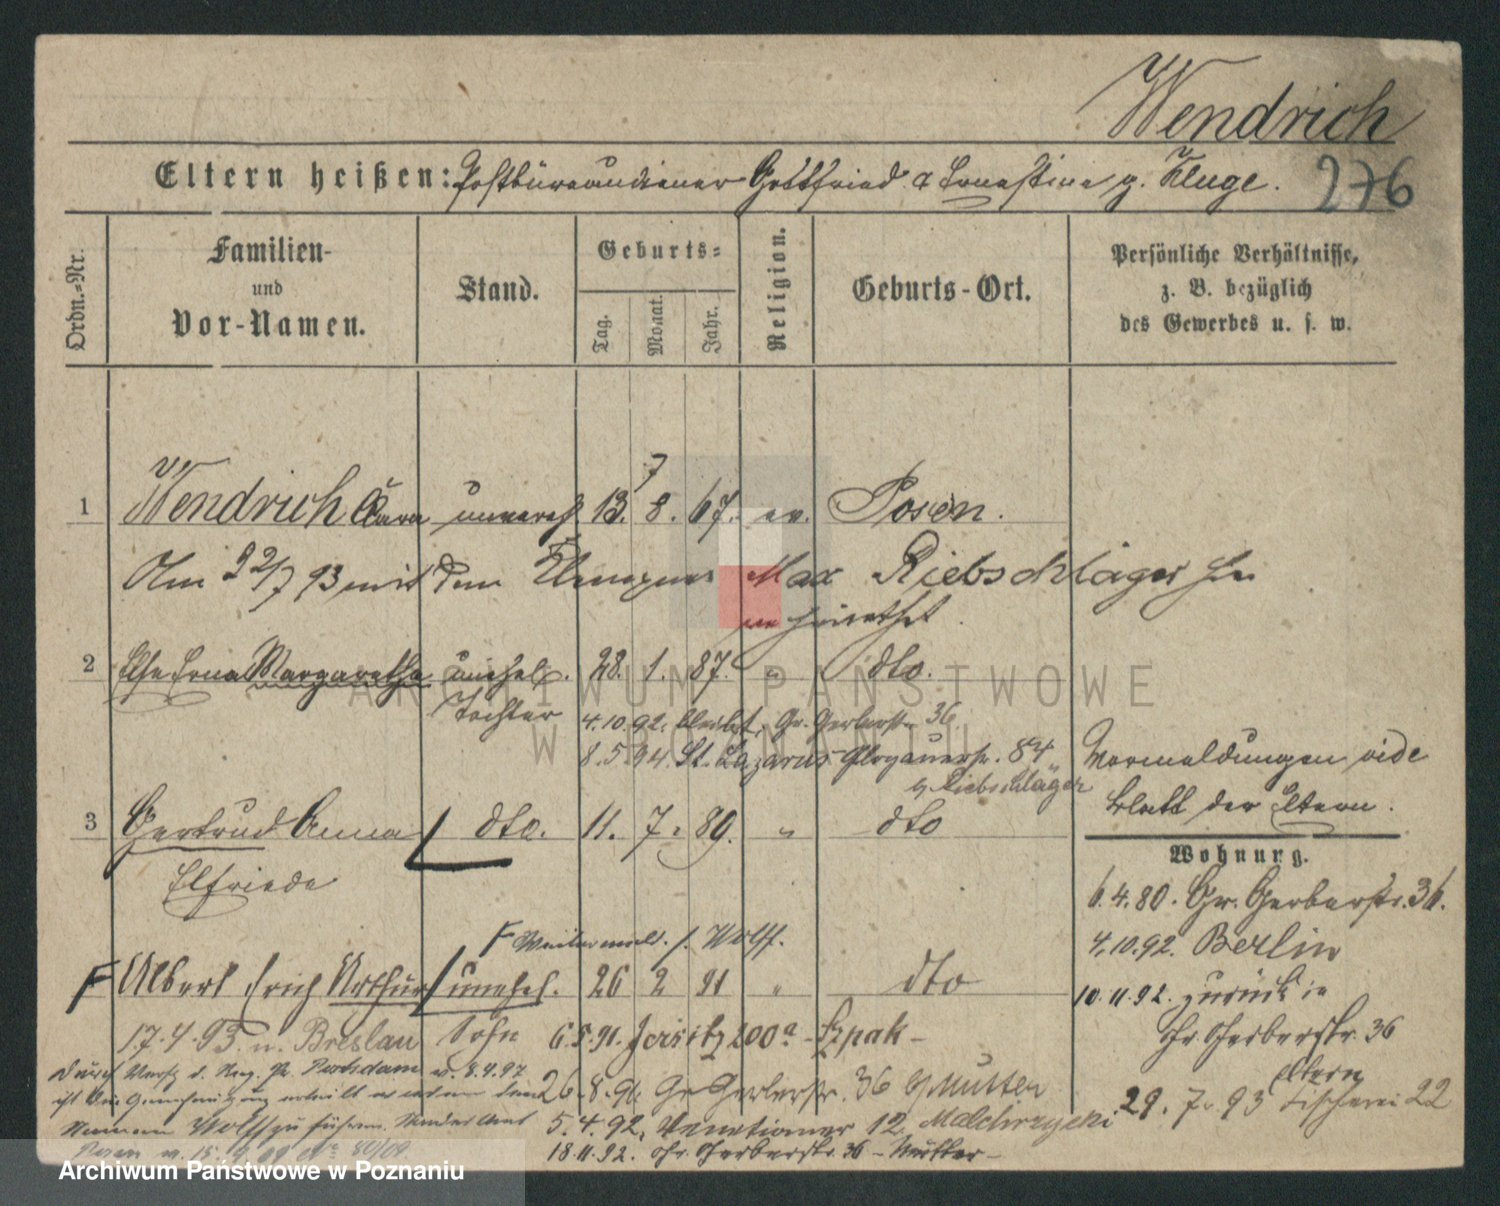 Wendrich
Eltern heißen: Postbüreaudiener Gottfried & Ernestine g. Kluge.
276
Ordn.-Nr.
Familien- und Vor-Namen.
Stand.
Geburts-
Tag. Monat. Jahr.
Religion.
Geburts-Ort.
Persönliche Verhältnisse,
z. B. bezüglich
des Gewerbes u. s. w.
7
1 Wendrich Clara unvereh. 13. 8. 67. ev. Posen.
Am 22/7 93 mit dem Klempner Max Riebschläger
verheirathet.
2 Else Erna Margarethe unehel. 28. 1. 87. " dto.
Tochter
4.10.92. Gr. Gerberstr. 36.
8.5.94. St. Lazarus Glogauerstr. 84
b/ Riebschläger
Vormeldungen vide
Blatt der Eltern.
3 Gertrud Anna dto. 11. 7. 89. " dto
Elfriede
Wohnung.
6.4.80. Gr. Gerberstr. 36.
4.10.92. Berlin
10.11.92. zurück in
Gr. Gerberstr. 36
Eltern
29. 7. 93 Fischerei 22
F Wolff.
F Albert Erich Arthur unehel. 26 2 91 " dto
17.4.93. n. Breslau Sohn 6.5.91. Jersitz 200a - Szpak -
Durch Verf. d. Reg. Pr. Potsdam v. 8.4.97
26.8.91. Gr. Gerberstr. 36 b/ Mutter
ist die Genehmigung ertheilt den
Namen Wolff zu führen.
5.4.92. Venetianer 12. Malchrzycki
Posen
18.11.92. Gr. Gerberstr. 36 - Mutter -
ARCHIWUM PAŃSTWOWE
W POZNANIU
Archiwum Państwowe w Poznaniu